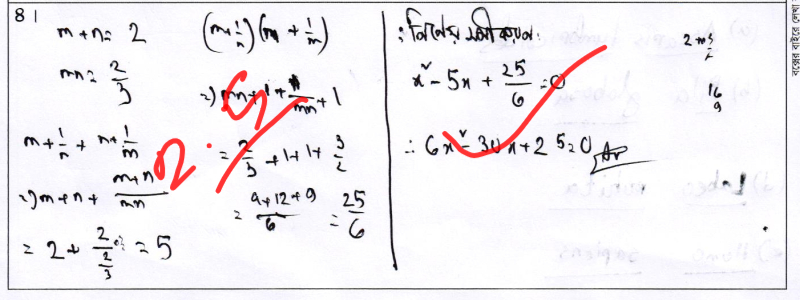 8।
m + n = 2
mn = 2/3
m + 1/n + n + 1/m
=> m + n + (m+n)/mn
= 2 + 2/(2/3) = 5
(m + 1/n)(n + 1/m)
=> mn + 1 + 1/mn + 1
= 2/3 + 1 + 1 + 3/2
= (4+12+9)/6 = 25/6
x² - 5x + 25/6 = 0
∴ 6x² - 30x + 25 = 0 Ar
16/9
2.5
বক্সের বাইরে লেখা